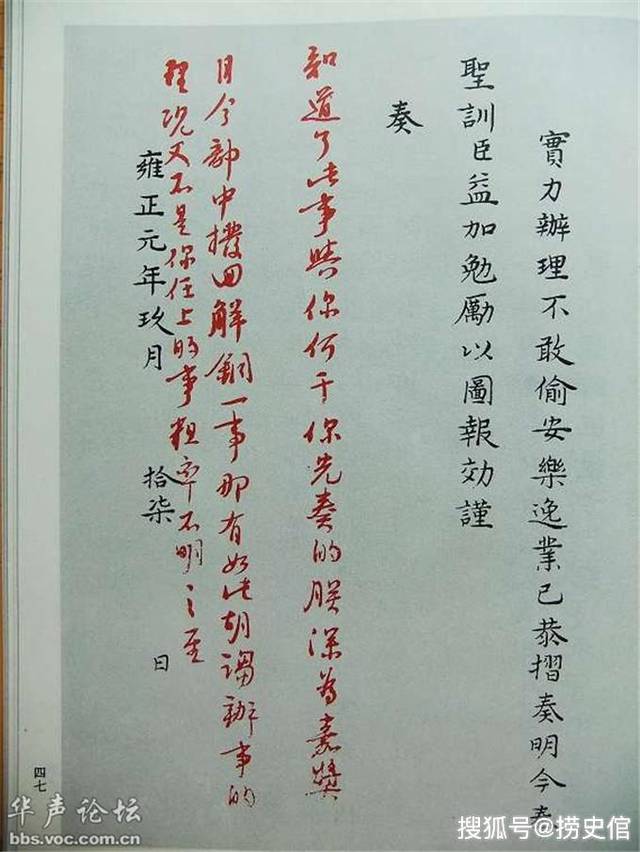 實力辦理不敢偷安樂逸業已恭摺奏明今奉
聖訓臣益加勉勵以圖報効謹
奏
知道了此事與你何干你先奏的朕深為嘉獎
目今部中撥回解銅一事那有如此胡謅辦事的
理況又不是你任上的事粗率不明之至
雍正元年玖月 拾柒 日
四七
华声论坛
bbs.voc.com.cn
搜狐号@捞史倌